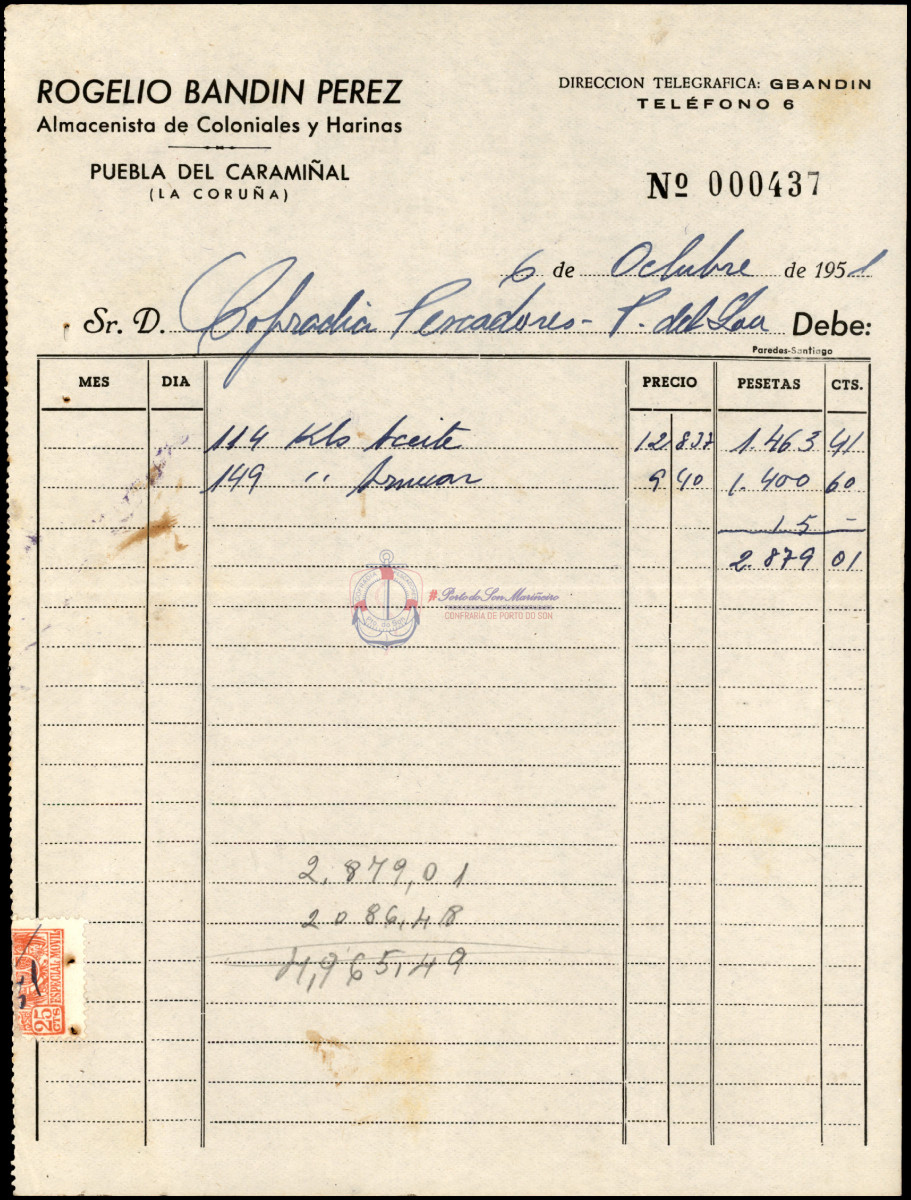 ROGELIO BANDIN PEREZ
Almacenista de Coloniales y Harinas
PUEBLA DEL CARAMIÑAL
(LA CORUÑA)
DIRECCION TELEGRAFICA: GBANDIN
TELÉFONO 6
Nº 000437
6 de Octubre de 1951
Sr. D. Cofradia Pescadores - P. del Son Debe:
Paredes-Santiago
MES DIA PRECIO PESETAS CTS.
114 Kls Aceite 12 837 1.463 41
149 " Azucar 9 40 1.400 60
15 -
2.879 01
#Porto do Son Mariñeiro
CONFRARIA DE PORTO DO SON
Pto. do Son
2.879,01
2086,48
4,965,49
25 CTS ESPECIAL MOVIL